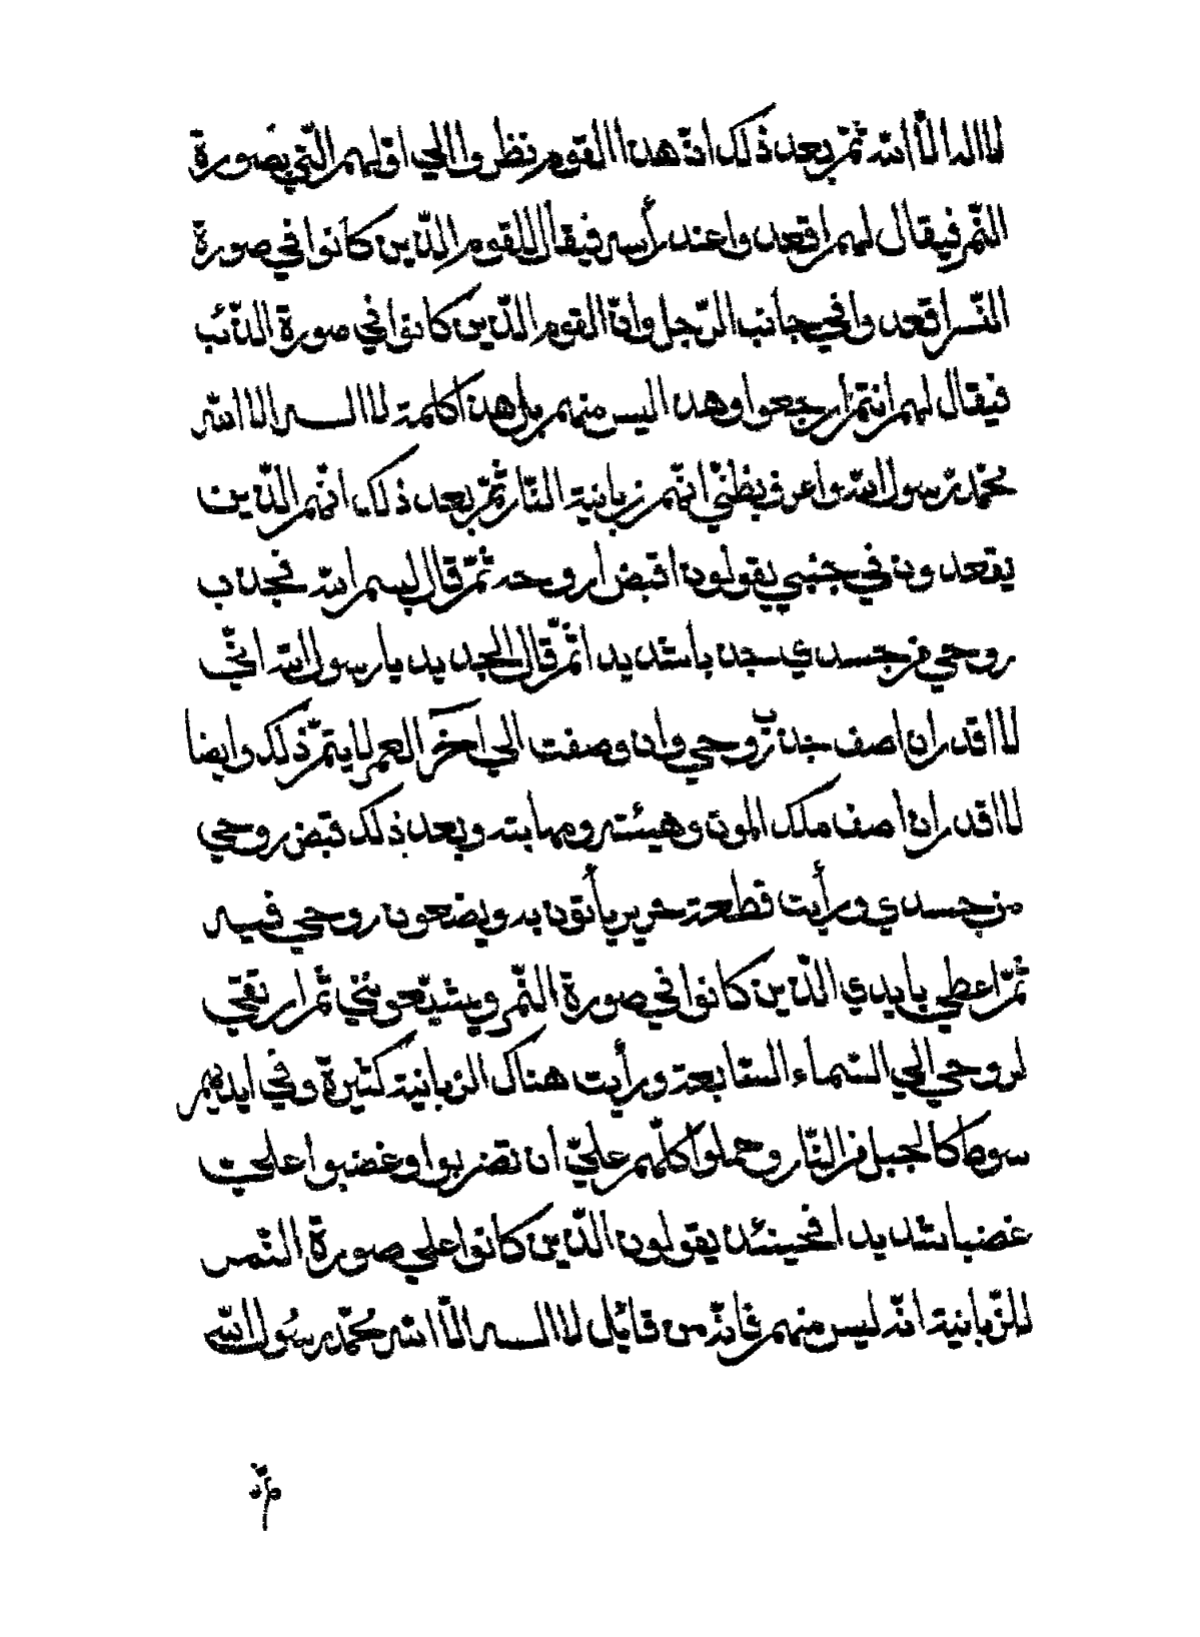 لااله الّا الله ثمّ بعد ذلك انّ هذا القوم نظروا الى اوّلهم الّتي بصورة
النّمر فيقال لهم اقعدوا عند رأسه فيقال للقوم الّذين كانوا في صورة
النّسر اقعدوا في جانب الرّجل وانّ القوم الذّين كانوا في صورة الذّئب
فيقال لهم انتم ارجعوا وهذا ليس منهم بل هذا كلمة لا الـه الا الله
محمّد رسول الله واعرف بظنّي انّهم زبانية النّار ثمّ بعد ذلك انّهم الذّين
يقعدون في جنبي يقولون اقبض اروحه ثمّ قال بسم الله فجذب
روحي من جسدي جذباً شديداً ثمّ قال الجديد يا رسول الله انّي
لا اقدر ان اصف جذب روحي وان وصفت الى آخر العمر لا يتمّ ذلك وايضا
لا اقدر ان اصف ملك الموت وهيئته ومهابته وبعد ذلك قبض روحي
من جسدي ورأيت قطعة حرير يأتون به ويضعون روحي فيه
ثمّ اعطي بايدي الذّين كانوا في صورة النّمر ويشيّعونني ثمّ ارتقي
لروحي الى السّماء السّابعة ورأيت هناك الزبانية كثيرة وفي ايديهم
سوط كالجبل من النّار وحملوا كلّهم عليّ ان تضربوا وغضبوا علي
غضبا شديدا فحينئذ يقولون الذّين كانوا على صورة النّمر
للزّبانية انّه ليس منهم فانّه من قائل لا الـه الّا الله محمّد رسول الله